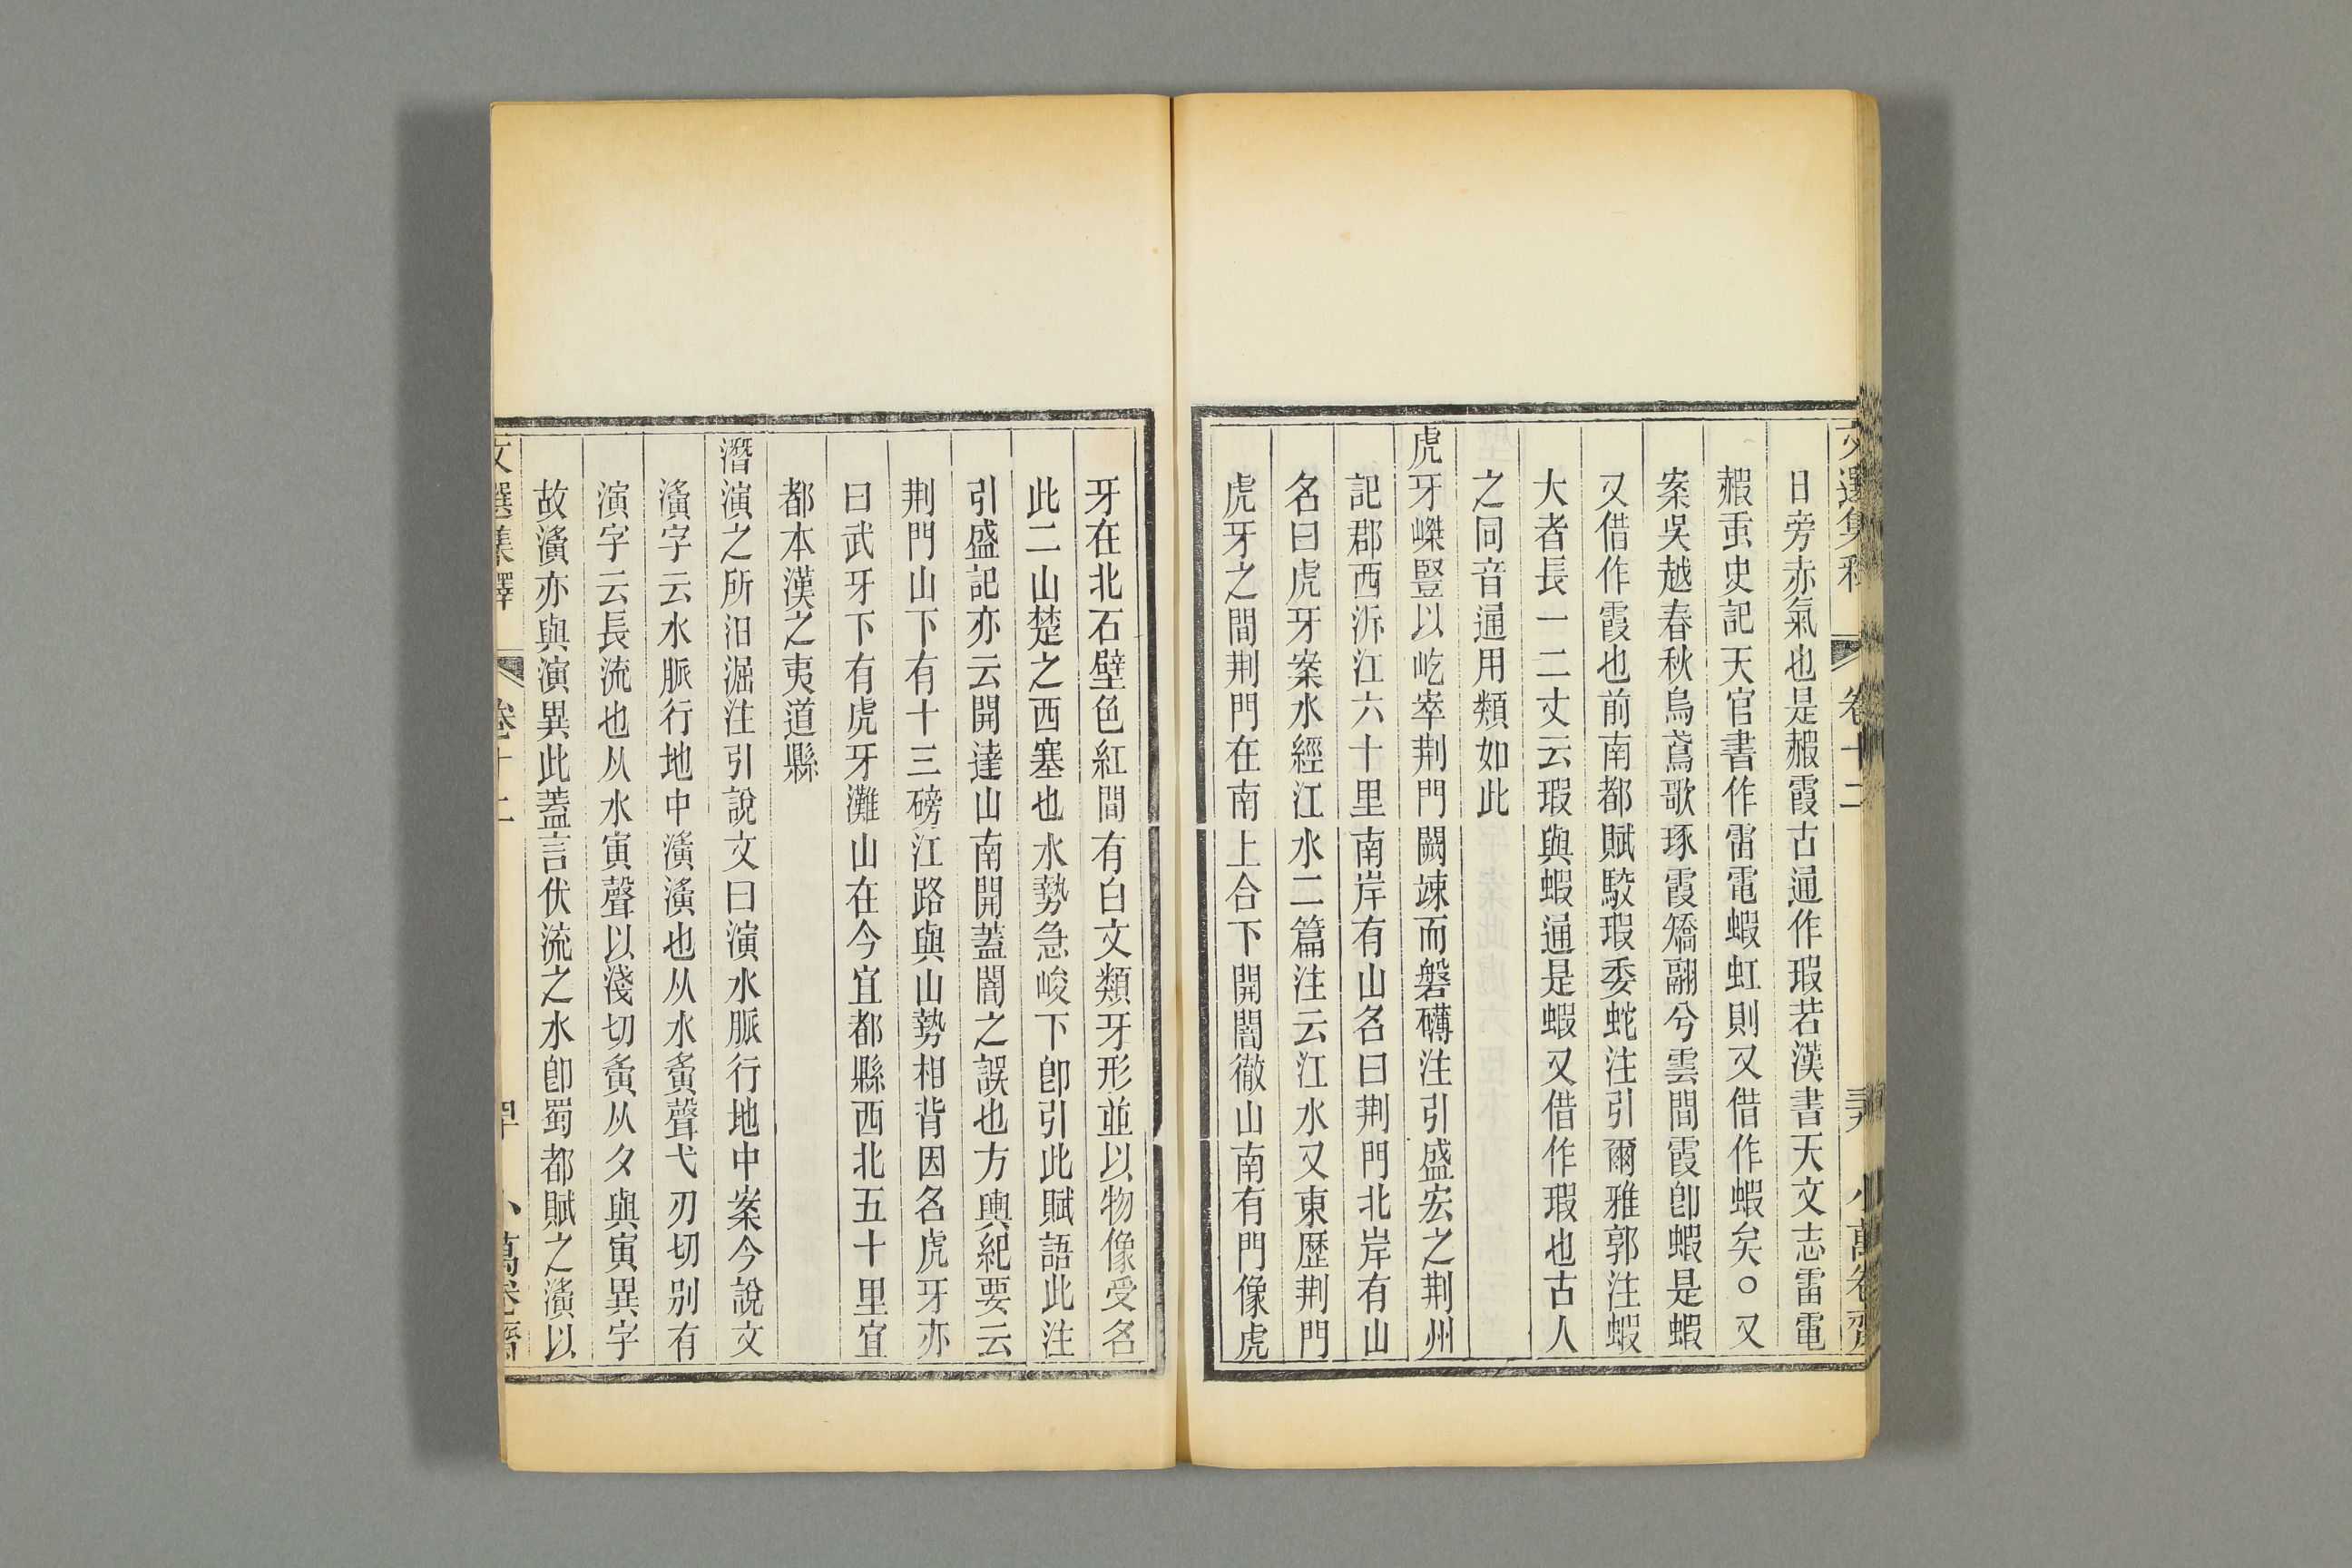 文選集釋 卷十二 小萬卷齋
日旁赤氣也是赮霞古通作瑕若漢書天文志雷電
赮䖝史記天官書作雷電蝦虹則又借作蝦矣○又
案吳越春秋烏鳶歌琢霞矯翮兮雲間霞卽蝦是蝦
又借作霞也前南都賦駮瑕委蛇注引爾雅郭注蝦
大者長一二丈云瑕與蝦通是蝦又借作瑕也古人
之同音通用類如此
虎牙嵥豎以屹崒荆門闕竦而磐礴注引盛宏之荆州
記郡西泝江六十里南岸有山名曰荆門北岸有山
名曰虎牙案水經江水二篇注云江水又東歷荆門
虎牙之間荆門在南上合下開闇徹山南有門像虎
牙在北石壁色紅間有白文類牙形並以物像受名
此二山楚之西塞也水勢急峻下卽引此賦語此注
引盛記亦云開達山南開蓋闇之誤也方輿紀要云
荆門山下有十三磅江路與山勢相背因名虎牙亦
曰武牙下有虎牙灘山在今宜都縣西北五十里宜
都本漢之夷道縣
潛演之所汩淈注引說文曰演水脈行地中案今說文
濥字云水脈行地中濥濥也从水夤聲弋刃切別有
演字云長流也从水寅聲以淺切夤从夕與寅異字
故濥亦與演異此蓋言伏流之水卽蜀都賦之濥以
文選集釋 卷十二 小萬卷齋